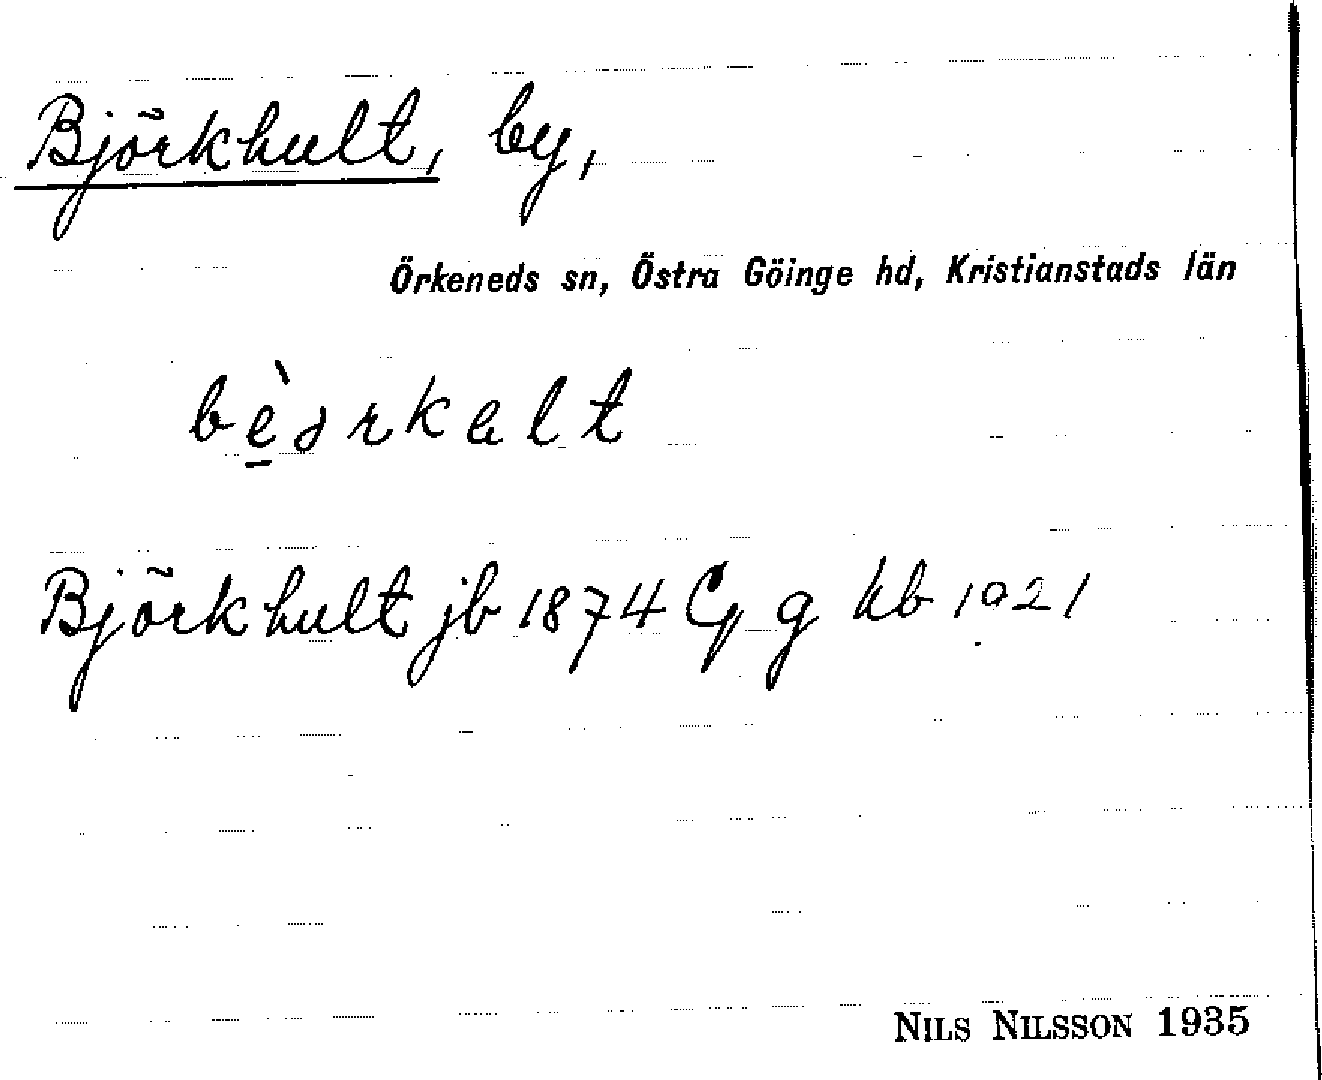 Björkhult, by,
Örkeneds sn, Östra Göinge hd, Kristianstads län
Björkhult jb 1874 Gg g kb 1921
NILS NILSSON 1935